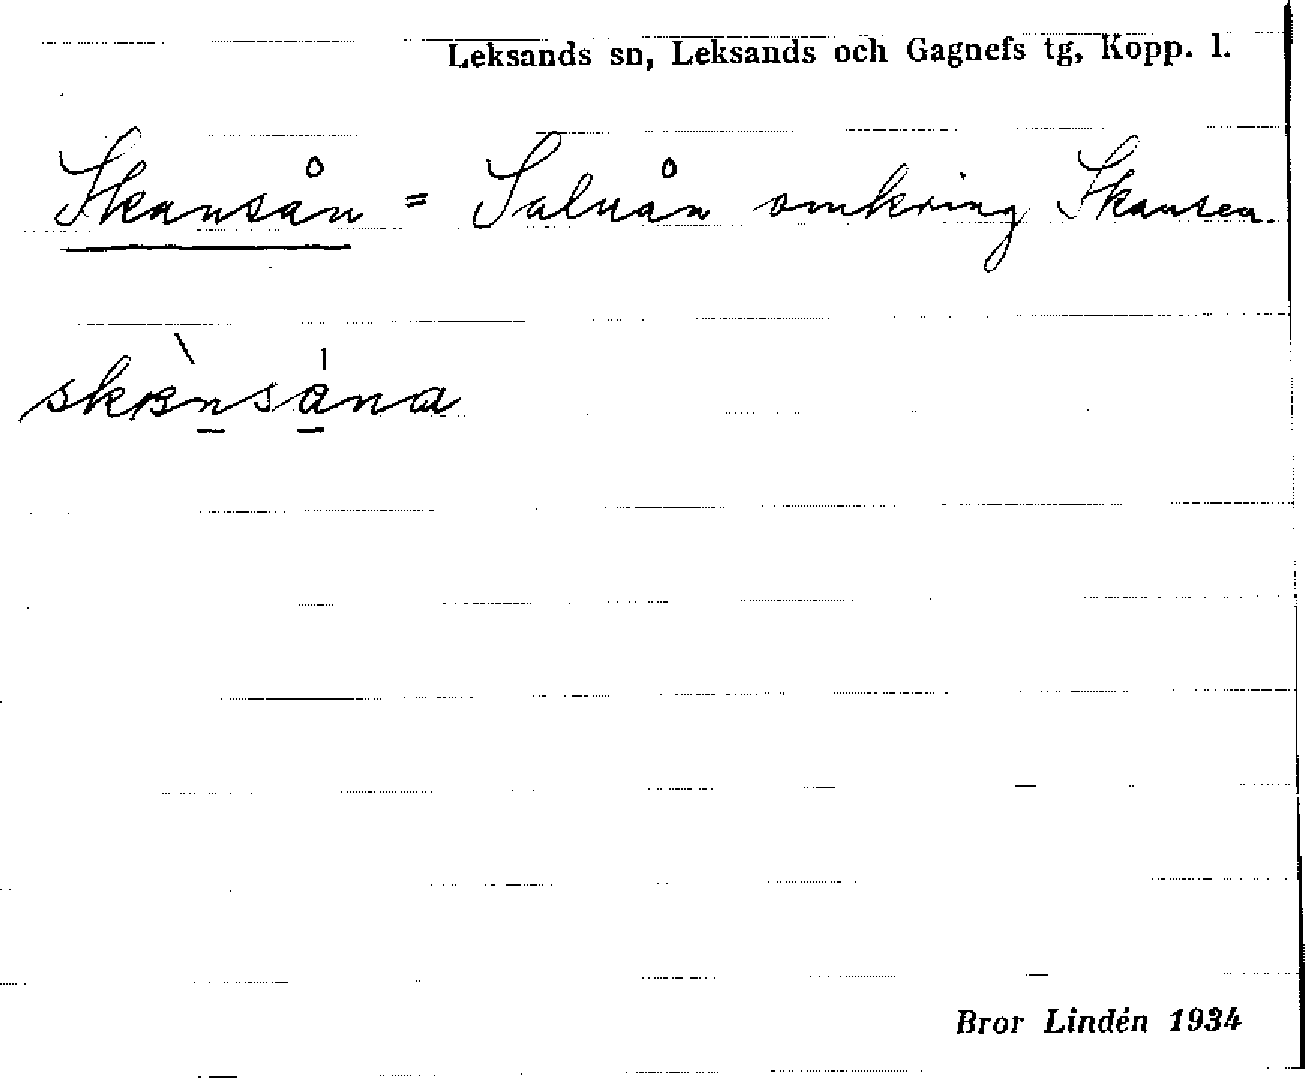 Leksands sn, Leksands och Gagnefs tg, Kopp. l.
Skansån = Saluån omkring Skansen.
Bror Lindén 1934